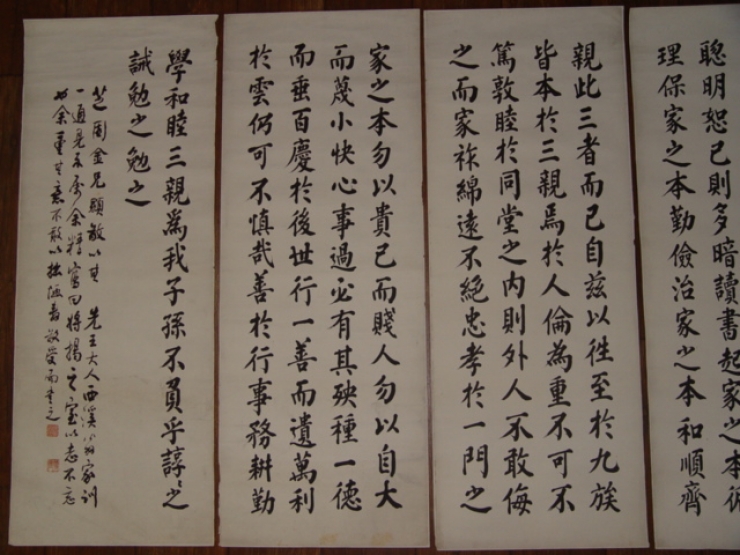 聰明恕己則多暗讀書起家之本循
理保家之本勤儉治家之本和順齊
親此三者而已自茲以徃至於九族
皆本於三親焉於人倫為重不可不
篤敦睦於同堂之內則外人不敢侮
之而家祚綿遠不絕忠孝於一門之
家之本勿以貴己而賤人勿以自大
而蔑小快心事過必有其殃種一德
而垂百慶於後世行一善而遺萬利
於雲仍可不慎哉善於行事務耕勤
學和睦三親為我子孫不負乎諄〻之
誡勉之勉之
芝周金兄願敬以其 先王大人西溪公家訓
一通見示屬余精寫曰將揭之室以志不忘
余 其意不敢以拙 敬 而書之